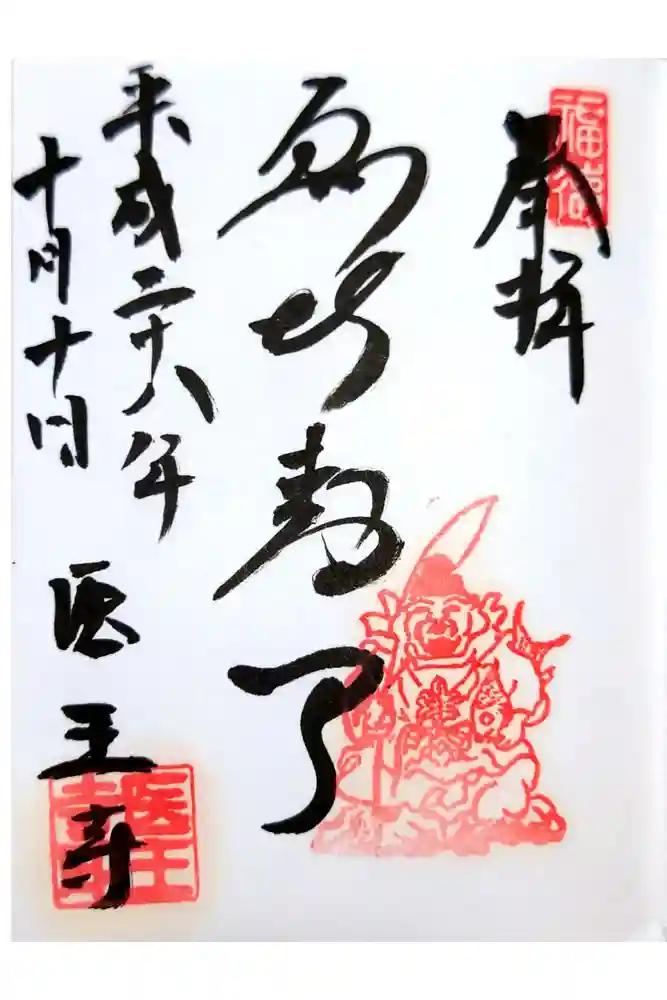 福徳
奉拝
恵比寿
平成二十八年
十月十日
医王寺
医王寺